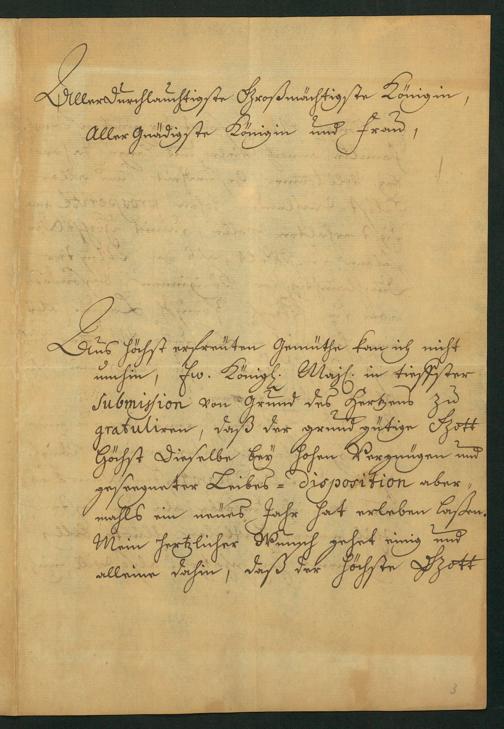 Allerdurchlauchtigste Großmächtigste Königin,
Aller Gnädigste Königin und Frau,
Aus höchst erfreüten Gemüthe kan ich nicht
umhin, Ew. Königl. Majst. in tieffster
Submission von Grund des Hertzens zu
gratuliren, daß der grund gütige Gott
Höchst Dieselbe bey hohen Vergnügen und
geseegneter Leibes-Disposition aber-
mahls ein neües Jahr hat erleben laßen.
Mein hertzlicher Wunsch gehet einig und
alleine dahin, daß der höchste Gott
3